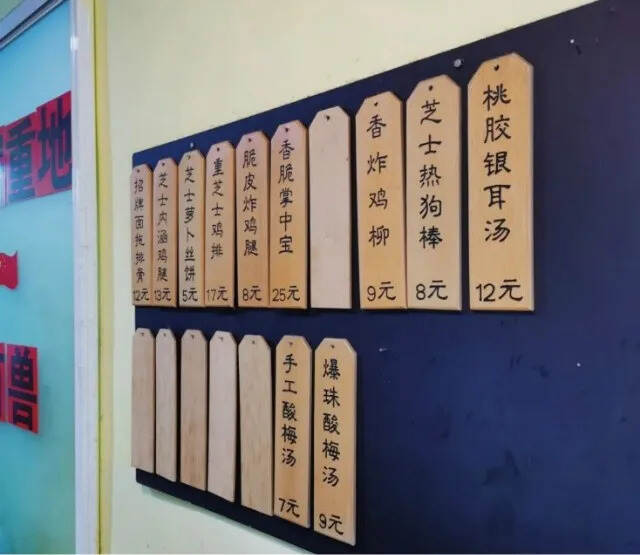 重地
兽
招牌面拖排骨
12元
芝士内涵鸡腿
13元
芝士萝卜丝饼
5元
重芝士鸡排
17元
脆皮炸鸡腿
8元
香脆掌中宝
25元
香炸鸡柳
9元
芝士热狗棒
8元
桃胶银耳汤
12元
手工酸梅汤
7元
爆珠酸梅汤
9元